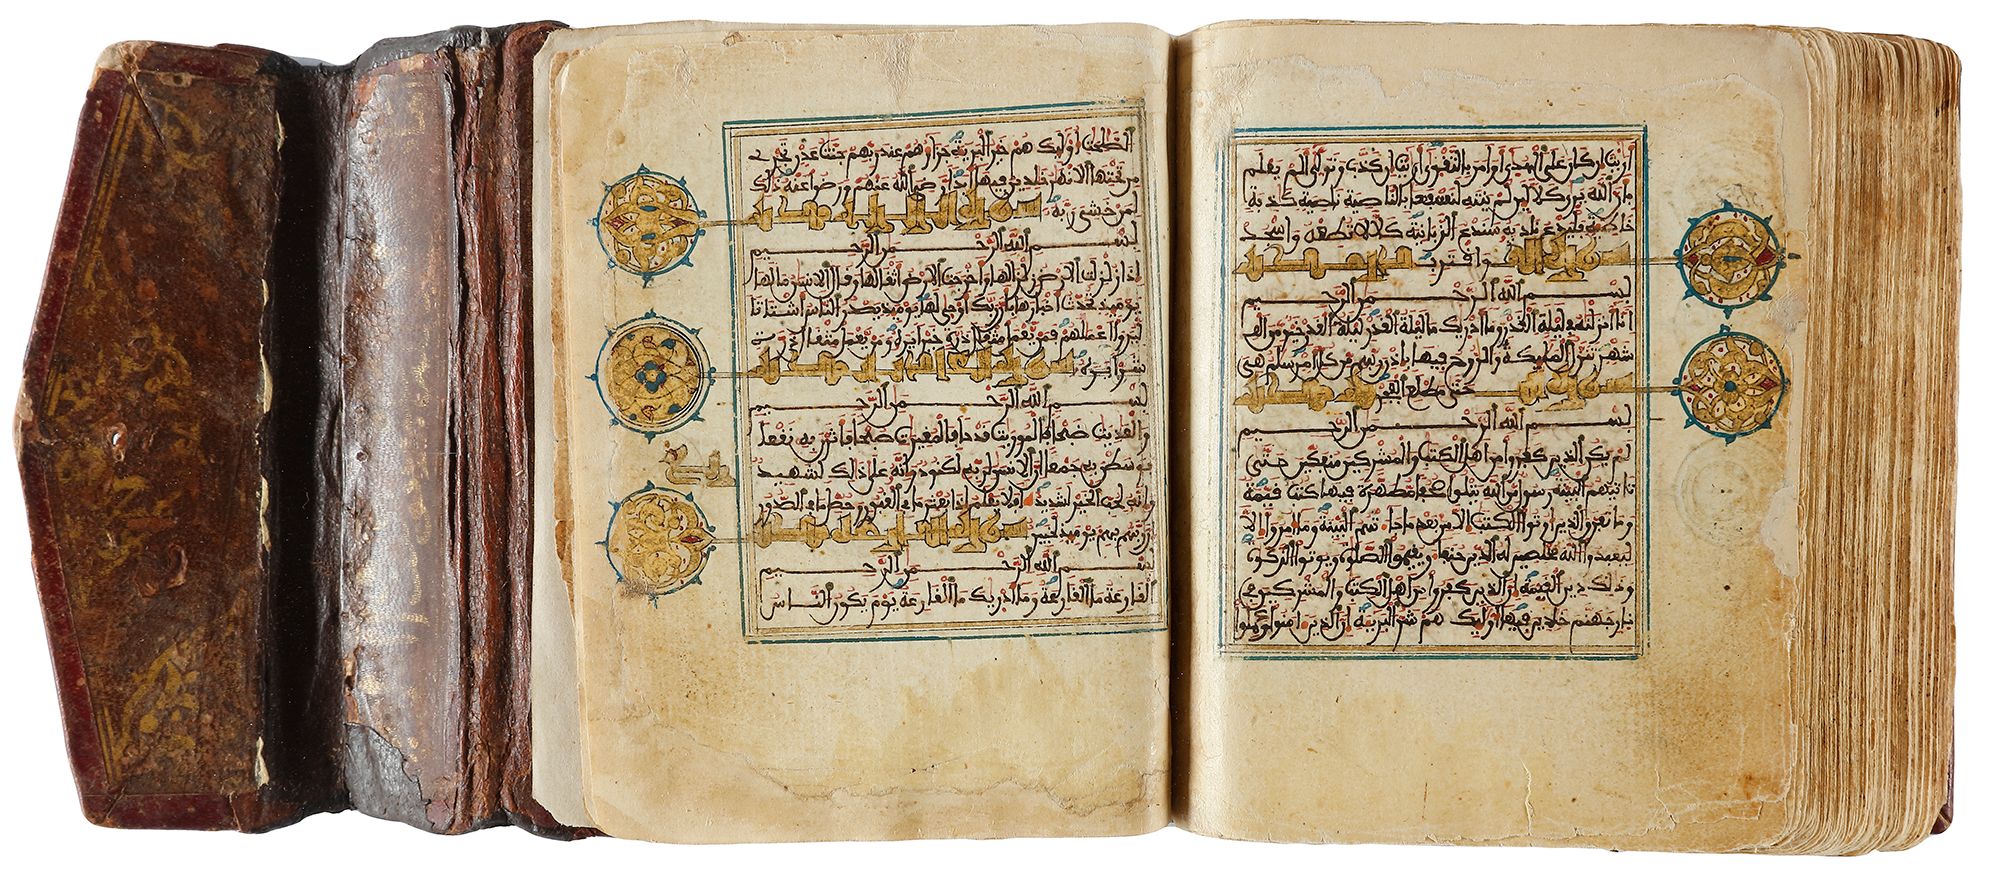 أرأيت إن كان على الهدى أو أمر بالتقوى أرأيت إن كذب وتولى ألم يعلم
بأن الله يرى كلا لئن لم ينته لنسفعا بالناصية ناصية كذبة
خاطئة فليدع ناديه سندع الزبانية كلا لا تطعه واسجد
واقترب
بسم الله الرحمن الرحيم
إنا أنزلنه في ليلة القدر وما أدريك ما ليلة القدر ليلة القدر خير من ألف
شهر تنزل الملئكة والروح فيها بإذن ربهم من كل أمر سلم هي
حتى مطلع الفجر
بسم الله الرحمن الرحيم
لم يكن الذين كفروا من أهل الكتب والمشركين منفكين حتى
تاتيهم البينة رسول من الله يتلوا صحفا مطهرة فيها كتب قيمة
وما تفرق الذين أوتوا الكتب إلا من بعد ما جاءتهم البينة وما أمروا إلا
ليعبدوا الله مخلصين له الدين حنفاء ويقيموا الصلوة ويوتوا الزكوة
وذلك دين القيمة إن الذين كفروا من أهل الكتب والمشركين في
نار جهنم خلدين فيها أولئك هم شر البرية إن الذين ءامنوا وعملوا
الصلحت أولئك هم خير البرية جزاؤهم عند ربهم جنت عدن تجري
من تحتها الانهر خلدين فيها أبدا رضي الله عنهم ورضوا عنه ذلك
لمن خشي ربه
بسم الله الرحمن الرحيم
إذا زلزلت الارض زلزالها وأخرجت الارض أثقالها وقال الانسن ما لها
يومئذ تحدث أخبارها بأن ربك أوحى لها يومئذ يصدر الناس أشتاتا
ليروا أعملهم فمن يعمل مثقال ذرة خيرا يره ومن يعمل مثقال ذرة
شرا يره
بسم الله الرحمن الرحيم
والعديت ضبحا فالموريت قدحا فالمغيرت صبحا فأثرن به نقعا
فوسطن به جمعا إن الانسن لربه لكنود وإنه على ذلك لشهيد
وإنه لحب الخير لشديد أفلا يعلم إذا بعثر ما في القبور وحصل ما في الصدور
إن ربهم بهم يومئذ لخبير
بسم الله الرحمن الرحيم
القارعة ما القارعة وما أدريك ما القارعة يوم يكون الناس